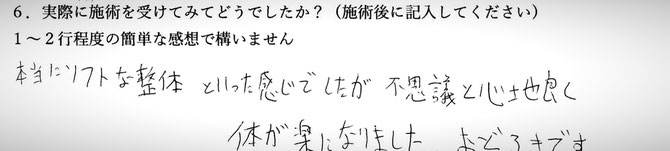 6．実際に施術を受けてみてどうでしたか？（施術後に記入してください）
1～2行程度の簡単な感想で構いません
本当にソフトな整体 といった感じでしたが 不思議と心地良く
体が楽になりました おどろきです